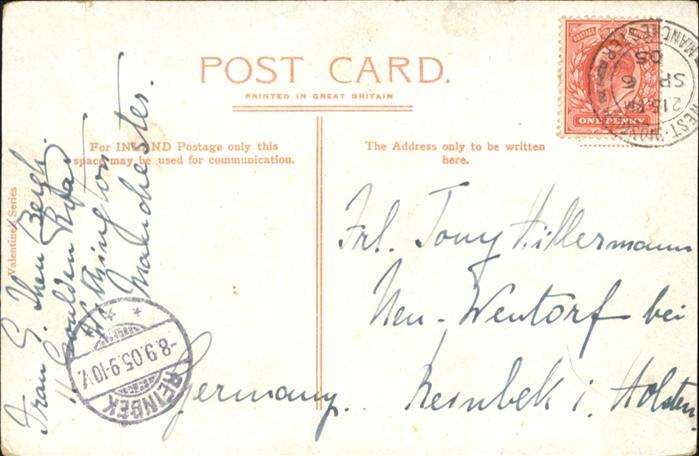 POST CARD.
PRINTED IN GREAT BRITAIN
For INLAND Postage only this
space may be used for communication.
The Address only to be written
here.
Valentines Series
ONE PENNY
MANCHESTER
2.15 PM
SP 6
05
Frl. Tony Hillermann
Neu-Wentorf bei
Reinbek i. Holstein.
Germany.
Frau G.
Withington
Manchester.
-8.9.05.9-10V.
REINBEK